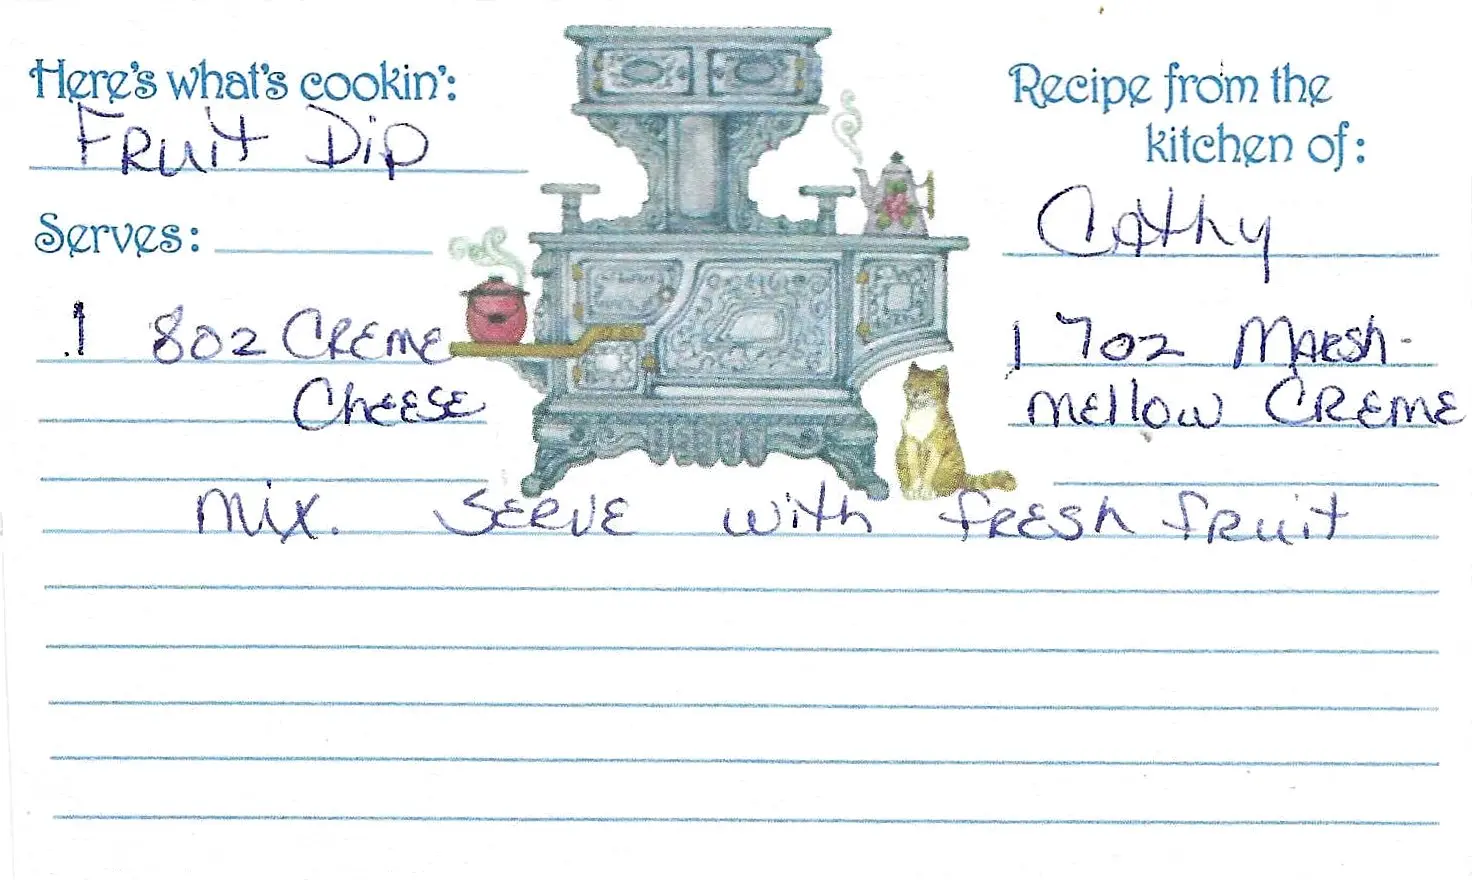 Here's what's cookin':
Fruit Dip
Recipe from the
kitchen of:
Cathy
Serves:
1 8oz Creme
Cheese
1 7oz Marsh-
mellow Creme
mix. Serve with fresh fruit